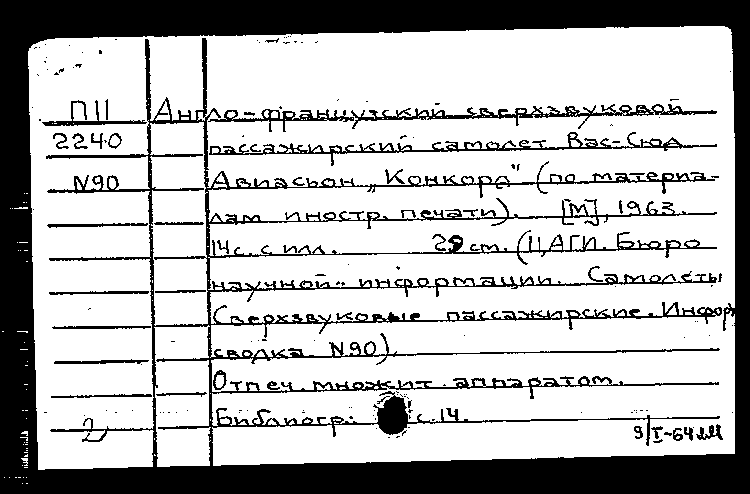 П11 Англо-французский сверхзвуковой
2240 пассажирский самолет Вас-Сюд
N90 Авиасьон „Конкорд" (по материа-
лам иностр. печати). [М], 1963.
14с. с илл. 29 см. (ЦАГИ. Бюро
научной информации. Самолеты
Сверхзвуковые пассажирские. Информ
сводка N90).
Отпеч. множит. аппаратом.
Библиогр.: с. 14.
2 9/I-64